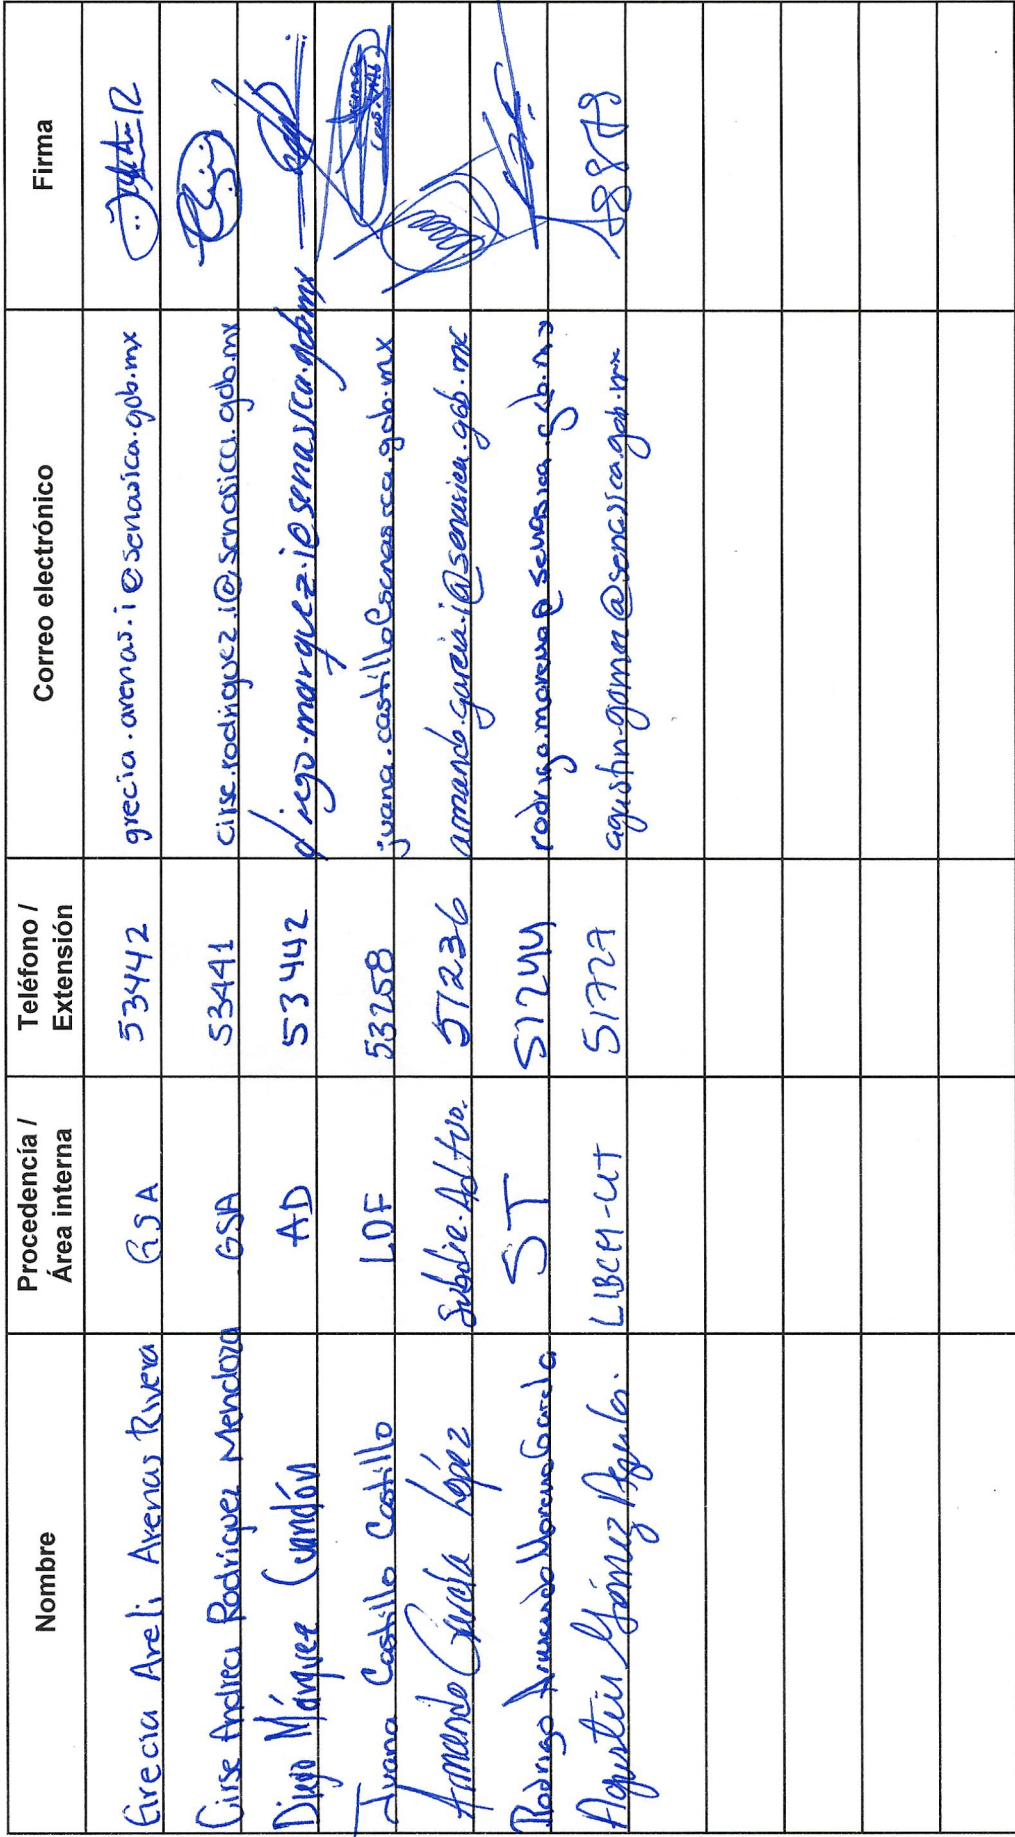 Nombre
Procedencía / Área interna
Teléfono / Extensión
Correo electrónico
Firma
Grecia Areli Arenas Rivera GSA 53442 grecia.arenas.i@senasica.gob.mx
Cirse Andrea Rodriguez Mendoza GSA 53441 cirse.rodriguez.i@senasica.gob.mx
Diego Márquez AD 53442 diego.marquez.i@senasica.gob.mx
Juana Castillo Castillo LDF 53258 juana.castillo@senasica.gob.mx
Armando García López Subdir. Adtvo. 51236 armando.garcia.i@senasica.gob.mx
Rodrigo Armando Moreno García ST 51244 rodrigo.moreno@senasica.gob.mx
Agustín Gómez 51727